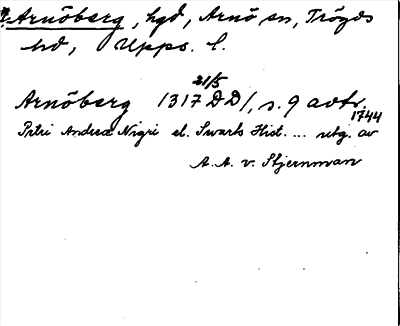 *Arnöberg, hgd, Arnö sn, Trögds
hd, Upps. l.
21/5
Arnöberg 1317 D D/, s. 9 avtr.
1744
Petri Andreæ Nigri el. Swarts Hist. ... utg. av
A. A. v. Stjernman